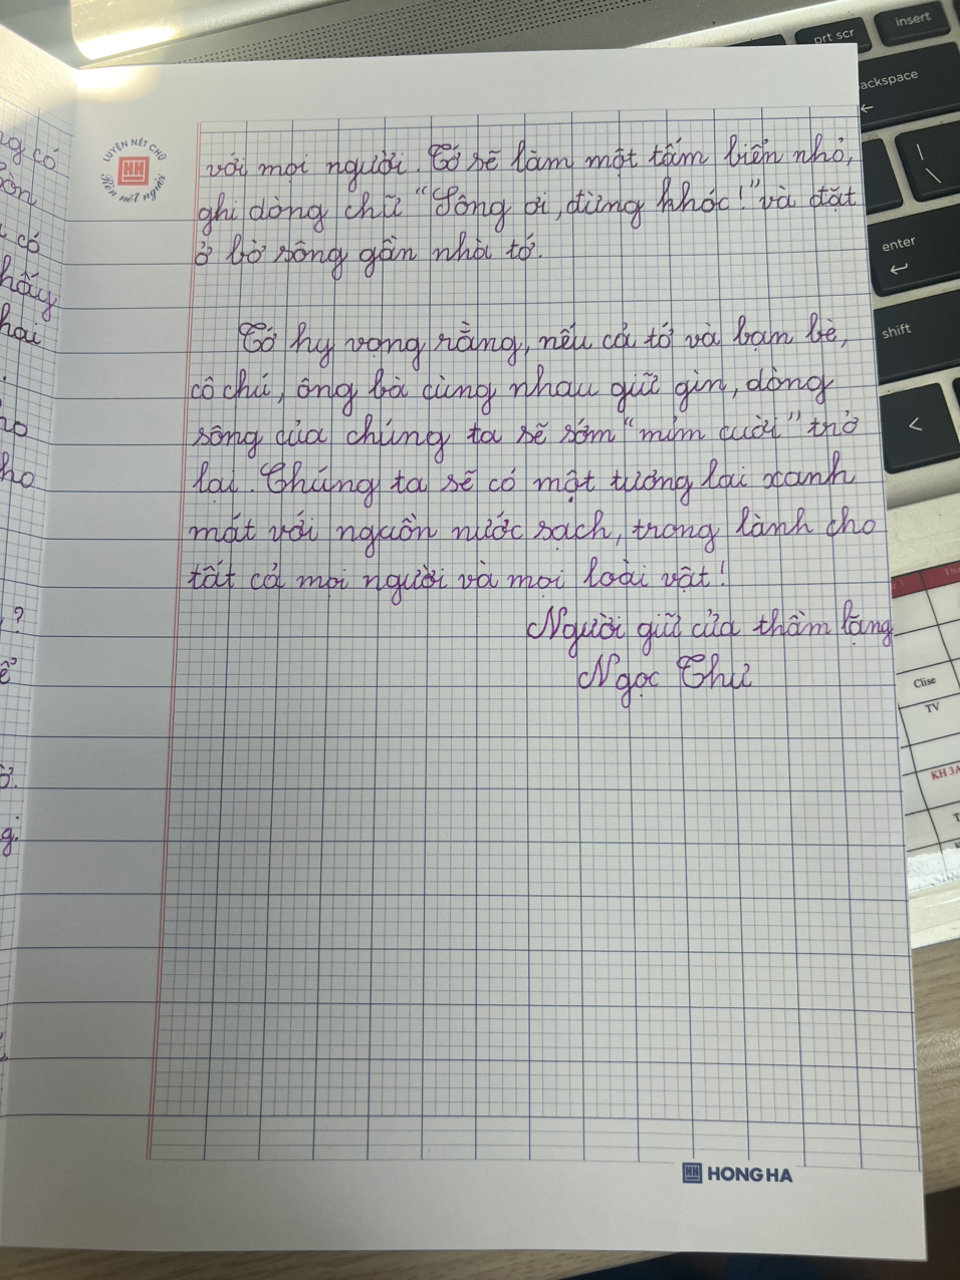 prt scr
insert
ackspace
enter
shift
LUYỆN NÉT CHỮ
Rèn nết người
với mọi người. Tớ sẽ làm một tấm biển nhỏ,
ghi dòng chữ "Sông ơi, đừng khóc!" và đặt
ở bờ sông gần nhà tớ.
Tớ hy vọng rằng, nếu cả tớ và bạm bè,
cô chú, ông bà cùng nhau giữ gìn, dòng
sông của chúng ta sẽ sớm "mỉm cười" trở
lại. Chúng ta sẽ có một tương lai xanh
mát với nguồn nước sạch, trong lành cho
tất cả mọi người và mọi loài vật!
Người giữ cửa thầm lặng
Ngọc Thư
ng có
có
hấy
hai
ho
?
Clise
TV
KH 3A
HONG HA